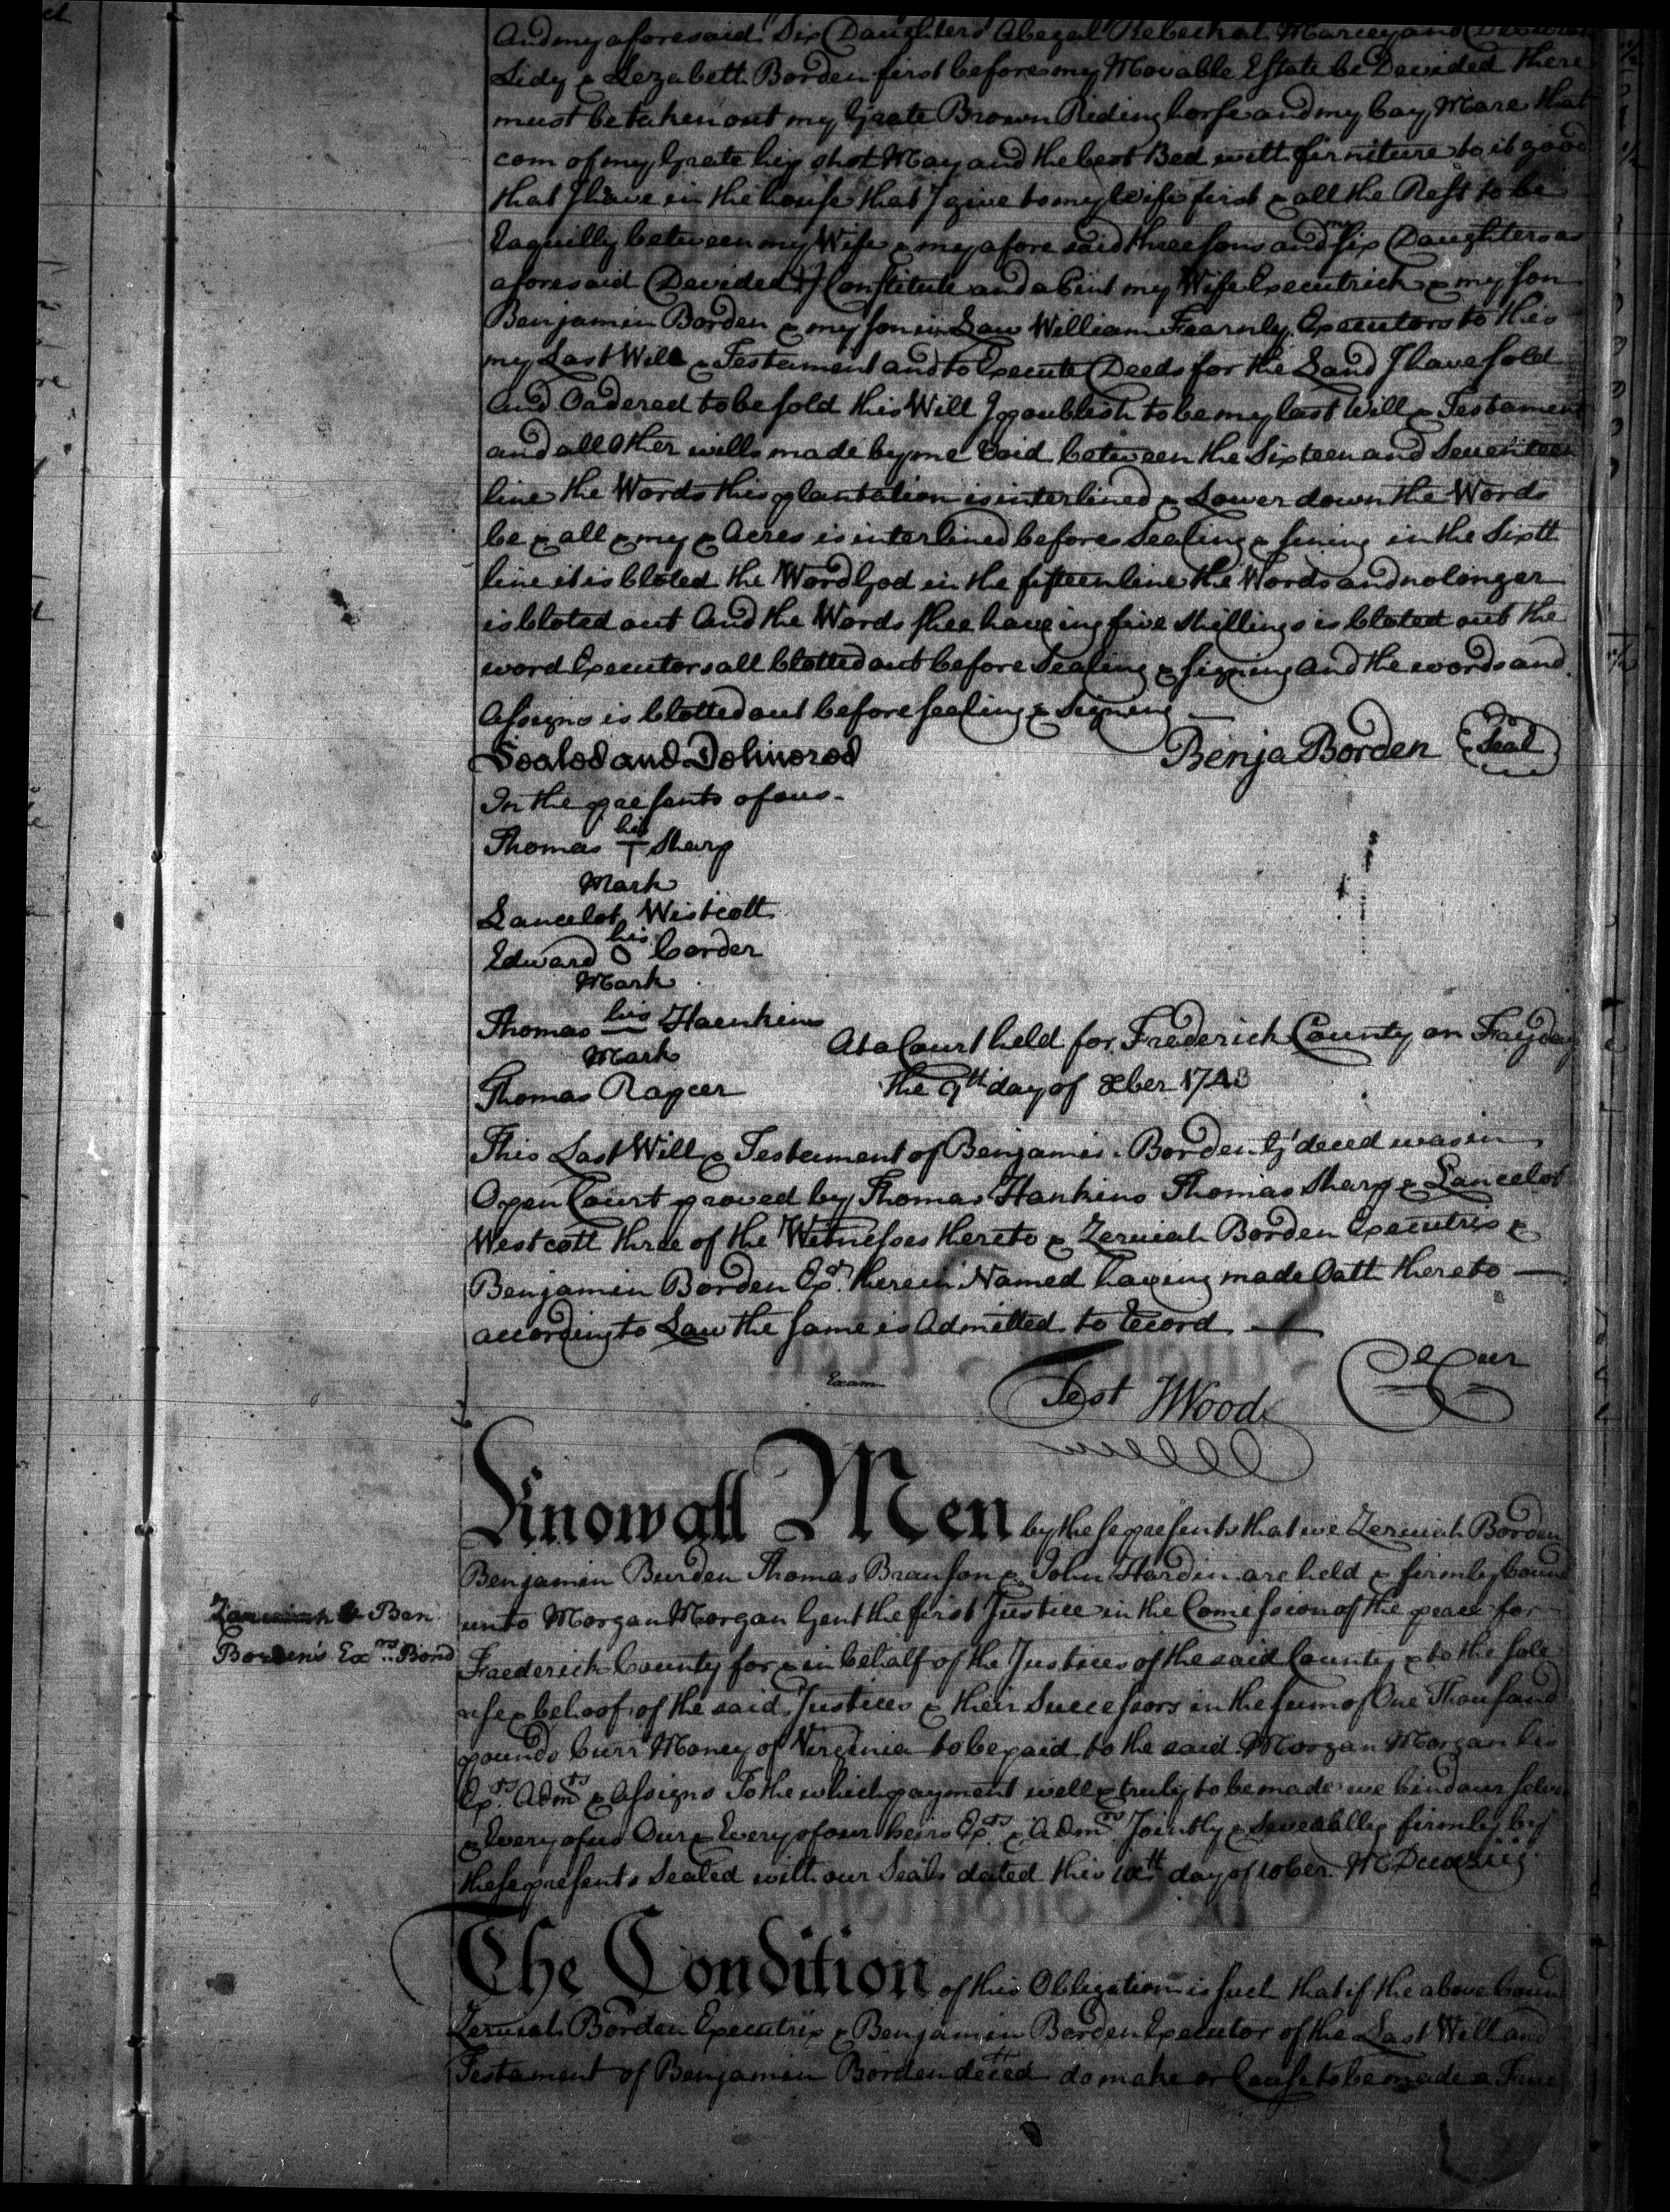 And my aforesaid Six Daughters Abegal Rebeckah Marcey and Deborah
Lidy & Lezabett Borden first before my Movable Estate be Devided there
must be taken out my Grate Brown Rideing horse and my bay Mare that
com of my Grate hip shot May and the best Bed with firniture to it good
that I have in the house that I give to my Wife first & all the Rest to be
Eaquilly between my Wife & my afore said three sons and my Six Daughters as
aforesaid Devided & I Constitute and a Pint my Wife Executrich & my son
Benjamin Borden & my son in Law William Fearnly Executors to this
my Last Will & Testament and to Execute Deeds for the Land I have sold
and Ordered to be sold this Will I poublish to be my last Will & Testament
and all Other wills made by me Void between the Sixteen and Seventeen
line the Words this plantation is interlined & Lower down the Words
be & all & my & Acres is interlined before Sealing & sining in the Sixtt
line it is bloted the Word God in the fifteen line the Words and no longer
is bloted out And the Words shee haveing five shillings is bloted out the
word Executors all blotted out before Sealing & signing and the words and
Assigns is blotted out before sealing & Signing
Sealed and Delivered Benja Borden Seal
In the presents of ous
his
Thomas T Sharp
Mark
Lancelot Westcott
his
Edward O Corder
Mark
his
Thomas — Haenkins
Mark
At a Court held for Frederick County on Fryday
Thomas Rapeer the 9th day of xber 1743
This Last Will & Testament of Benjamin Borden Gt deced was in
Open Court proved by Thomas Hankins Thomas Sharp & Lancelot
Westcott three of the Witnesses thereto & Zeruiah Borden Executrix &
Benjamin Borden Exr therein Named having made Oatt thereto
according to Law the same is Admitted to Record
Exam
Test JWood Cl Cur
Know all Men by these presents that we Zeruiah Borden
Benjamin Burden Thomas Branson & John Hardin are held & firmly bound
unto Morgan Morgan Gent the first Justice in the Comession of the peace for
Frederick County for & in behalf of the Justices of the said County & to the sole
Ben
Borden's Exrs Bond
use & behoof of the said Justices & their Successors in the sum of One Thousand
pounds Curr Money of Virginia to be paid to the said Morgan Morgan his
Exrs Admrs & Assigns To the which payment well & truly to be made we bind our selves
& Every of us Our & Every of our heirs Exrs & Admrs Jointly & Severally firmly by
these presents Sealed with our Seals dated this day of 10ber
The Condition of this Obligation is such that if the above boun
Zeruiah Borden Executrix & Benjamin Borden Executor of the Last Will and
Testament of Benjamin Borden deced do make or Cause to be made a True